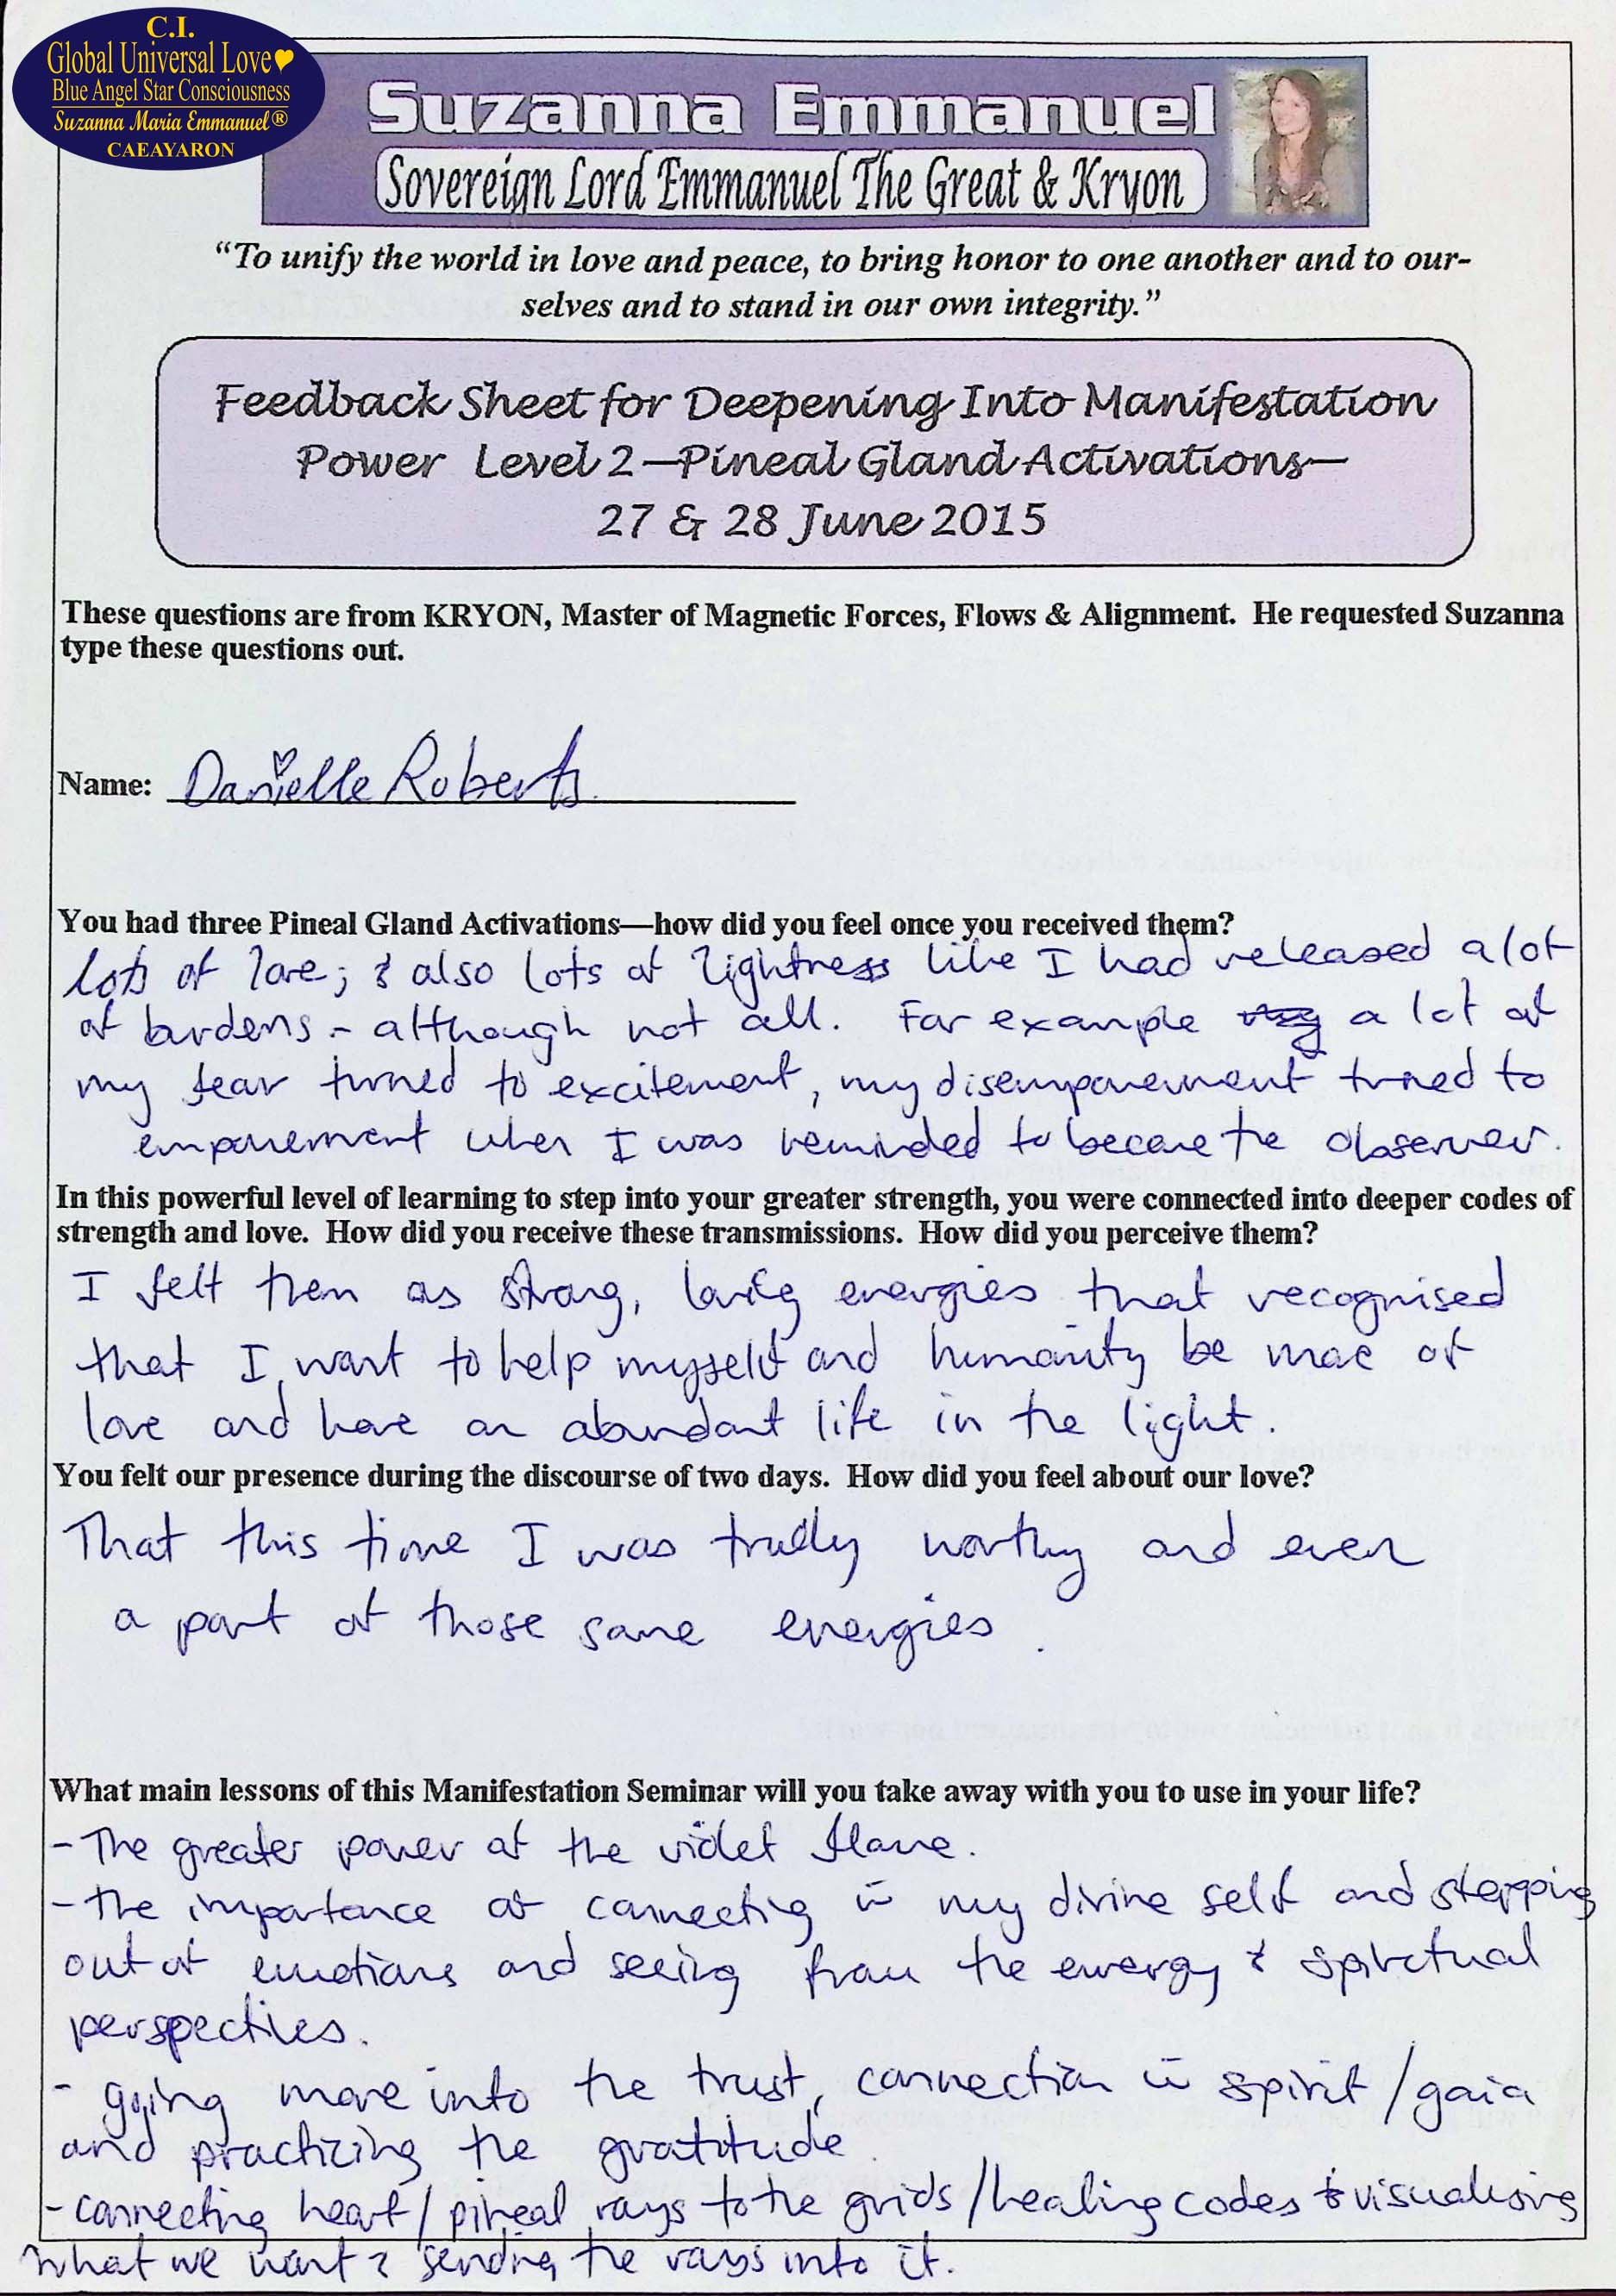 C.I.
Global Universal Love
Blue Angel Star Consciousness
Suzanna Maria Emmanuel®
CAEAYARON
Suzanna Emmanuel
Sovereign Lord Emmanuel The Great & Kryon
“To unify the world in love and peace, to bring honor to one another and to our-
selves and to stand in our own integrity.”
Feedback Sheet for Deepening Into Manifestation
Power Level 2—Pineal Gland Activations—
27 & 28 June 2015
These questions are from KRYON, Master of Magnetic Forces, Flows & Alignment. He requested Suzanna
type these questions out.
Name: Danielle Roberts
You had three Pineal Gland Activations—how did you feel once you received them?
lots of love; & also lots of lightness like I had released a lot
of burdens - although not all. For example a lot of
my fear turned to excitement, my disempowerment turned to
empowerment when I was reminded to become the observer.
In this powerful level of learning to step into your greater strength, you were connected into deeper codes of
strength and love. How did you receive these transmissions. How did you perceive them?
I felt them as strong, loving energies that recognised
that I want to help myself and humanity be more of
love and have an abundant life in the light.
You felt our presence during the discourse of two days. How did you feel about our love?
That this time I was truely worthy and even
a part of those same energies.
What main lessons of this Manifestation Seminar will you take away with you to use in your life?
- The greater power of the violet flame.
- the importance of connecting in my divine self and stepping
out of emotions and seeing from the energy & spiritual
perspectives.
- going more into the trust, connection in spirit / gaia
and practicing the gratitude.
- connecting heart / pineal rays to the grids / healing codes & visualising
what we want & sending the rays into it.